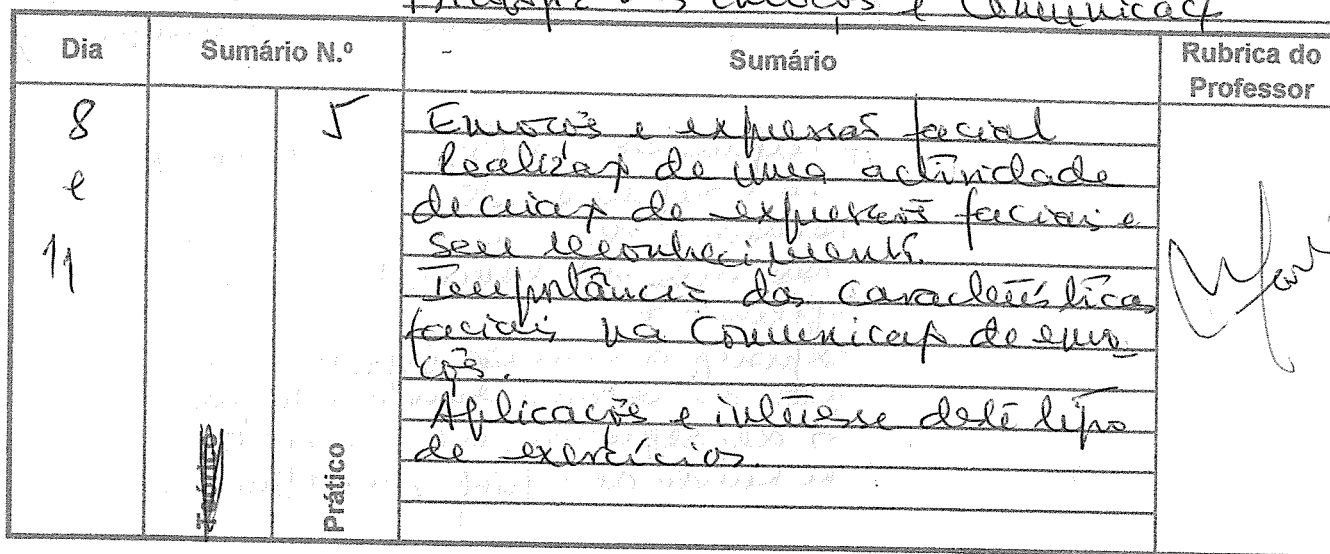 Emoções e Comunicação
Dia
Sumário N.º
Sumário
Rubrica do
Professor
8
e
11
5
Teórico
Prático
Emoções e expressão facial
Realização de uma actividade
de criação de expressões faciais e
seu reconhecimento.
Importância das características
faciais na Comunicação de emo-
ções.
Aplicações e interesse deste tipo
de exercícios.